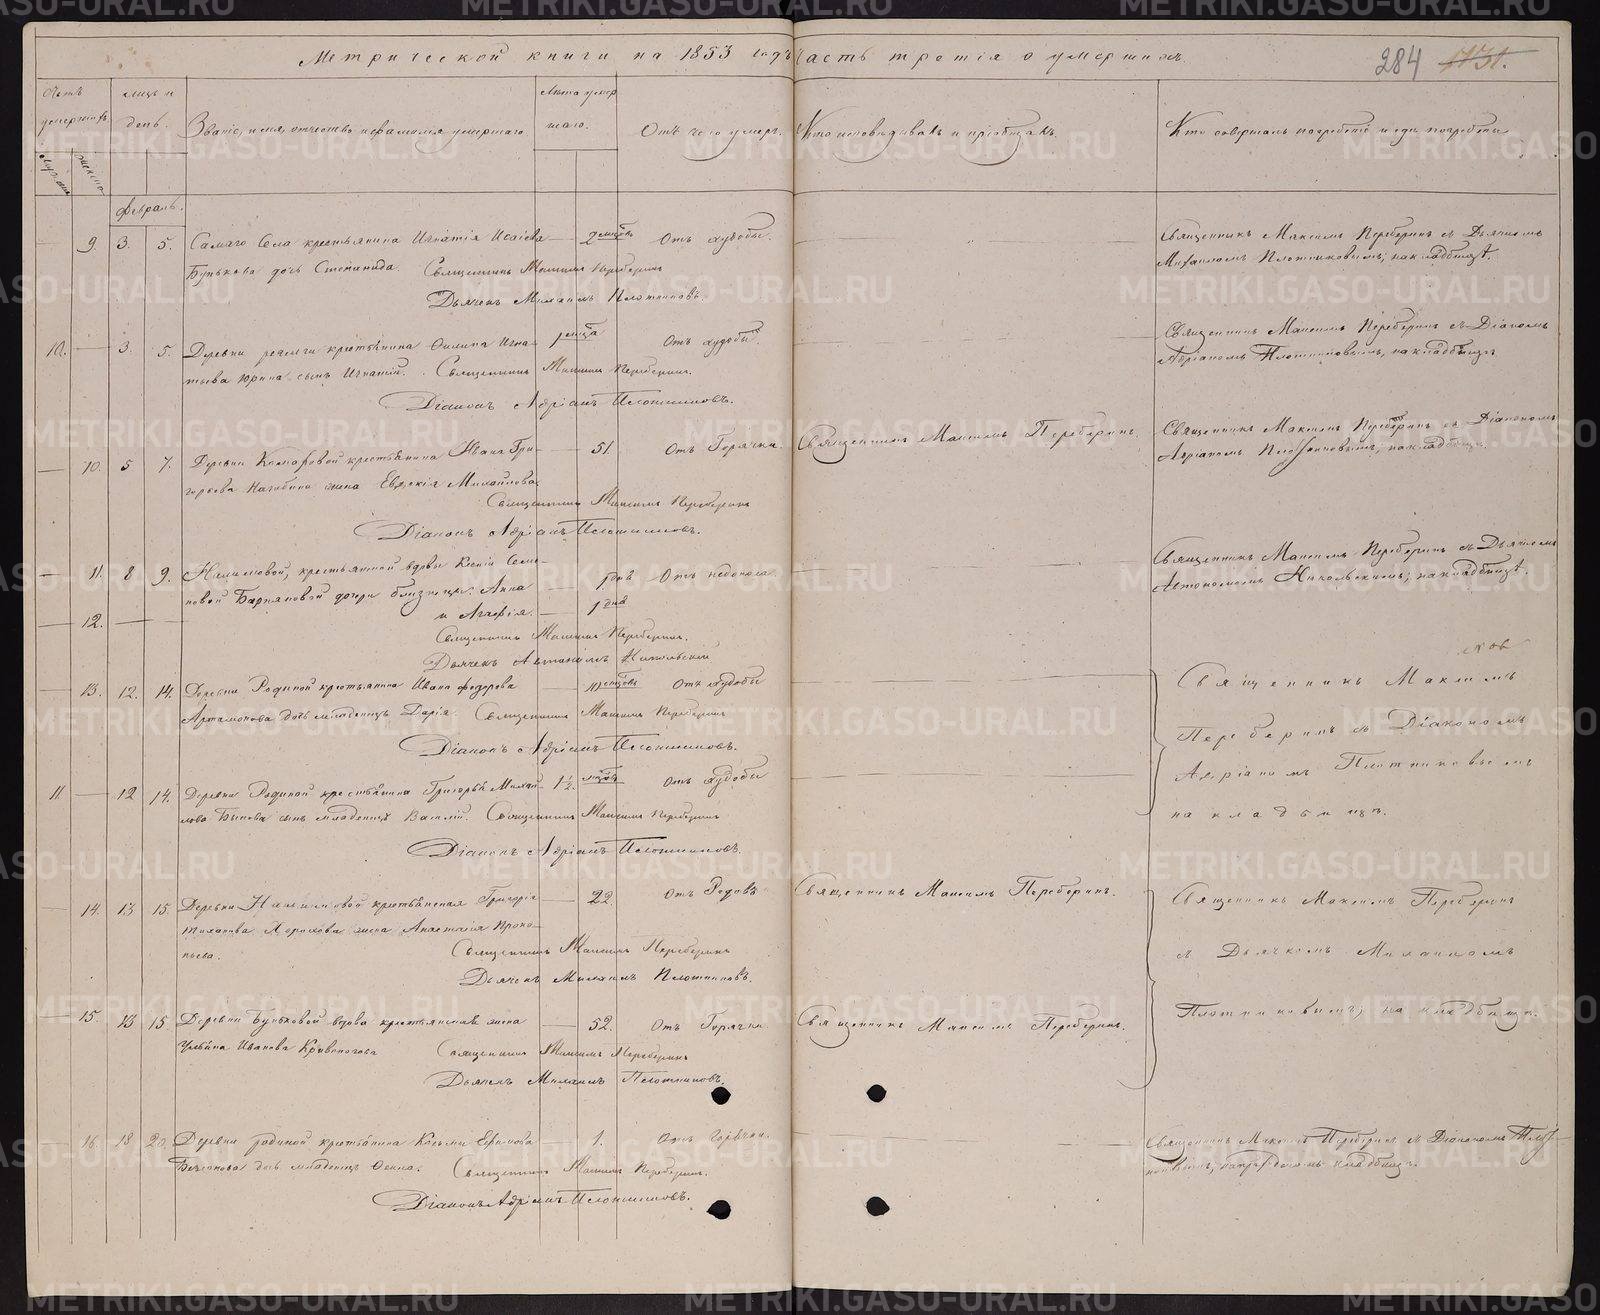 Метрической книги на 1853 годъ часть третія о умершихъ.
284
Счетъ умершихъ.
мужска
женска
мѣсяцъ и день.
Званіе, имя, отчество и фамилія умершаго
Лѣта умершаго.
Отъ чего умеръ.
Кто исповѣдывалъ и пріобщалъ.
Кто совершалъ погребеніе и гдѣ погребены
Февраль.
9. 3. 5. Самаго Села крестьянина Игнатія Исаіева 2 мѣсяцовъ Отъ худобы.
Бунькова дочь Степанида. Священникъ Максимъ Переберинъ
Дьячекъ Михаилъ Плотниковъ.
Священникъ Максимъ Переберинъ съ Дьячкомъ
Михаиломъ Плотниковымъ, на кладбищѣ.
10. 3. 5. Деревни крестьянина Филипа Игна-
тьева Юрина сынъ Игнатій. Священникъ Максимъ Переберинъ.
1 мѣсяца Отъ худобы.
Діаконъ Адріанъ Плотниковъ.
Священникъ Максимъ Переберинъ съ Діакономъ
Адріаномъ Плотниковымъ, на кладбищѣ.
10. 5 7. Деревни Комаровой крестьянина Ивана Гри-
горьева Нагибина жена Евдокія Михайлова.
51. Отъ Горячки. Священникъ Максимъ Переберинъ.
Священникъ Максимъ Переберинъ
Діаконъ Адріанъ Плотниковъ.
Священникъ Максимъ Переберинъ съ Діакономъ
Адріаномъ Плотниковымъ, на кладбищѣ.
11. 8 9. крестьянской вдовы Ксеніи Семе-
новой дочери близнецы. Анна 1 дня Отъ недоноса.
12. и Агафія. 1 дня
Священникъ Максимъ Переберинъ.
Дьячекъ Автономъ Никольскій
Священникъ Максимъ Переберинъ съ Дьячкомъ
Автономомъ Никольскимъ, на кладбищѣ.
13. 12. 14. Деревни Родиной крестьянина Ивана Федорова
Артамонова дочь младенецъ Дарія. Священникъ Максимъ Переберинъ
мѣсяцовъ Отъ худобы
Діаконъ Адріанъ Плотниковъ.
Священникъ Максимъ
Переберинъ съ Діакономъ
Адріаномъ Плотниковымъ
на кладбищѣ.
11 12 14. Деревни Родиной крестьянина Григорья Михай-
лова Быкова сынъ младенецъ Василій. Священникъ Максимъ Переберинъ
1 1/2. мѣсяца Отъ худобы
Діаконъ Адріанъ Плотниковъ.
14. 13 15. Деревни крестьянская Григорія
Тиханова жена Анастасія Проко-
пьева.
22. Отъ Родовъ Священникъ Максимъ Переберинъ.
Священникъ Максимъ Переберинъ
Дьячекъ Михаилъ Плотниковъ.
Священникъ Максимъ Переберинъ
съ Дьячкомъ Михаиломъ
Плотниковымъ, на кладбищѣ.
15. 13 15. Деревни Буньковой вдова крестьянская жена
Ульяна Иванова Кривоногова
52. Отъ Горячки. Священникъ Максимъ Переберинъ.
Священникъ Максимъ Переберинъ
Дьячекъ Михаилъ Плотниковъ.
16. 18 20. Деревни Родиной крестьянина Козьмы Ефимова
дочь младенецъ Фекла. Священникъ Максимъ Переберинъ.
1. Отъ горячки.
Діаконъ Адріанъ Плотниковъ.
Священникъ Максимъ Переберинъ съ Діакономъ Плот-
никовымъ, кладбищѣ.
METRIKI.GASO-URAL.RU